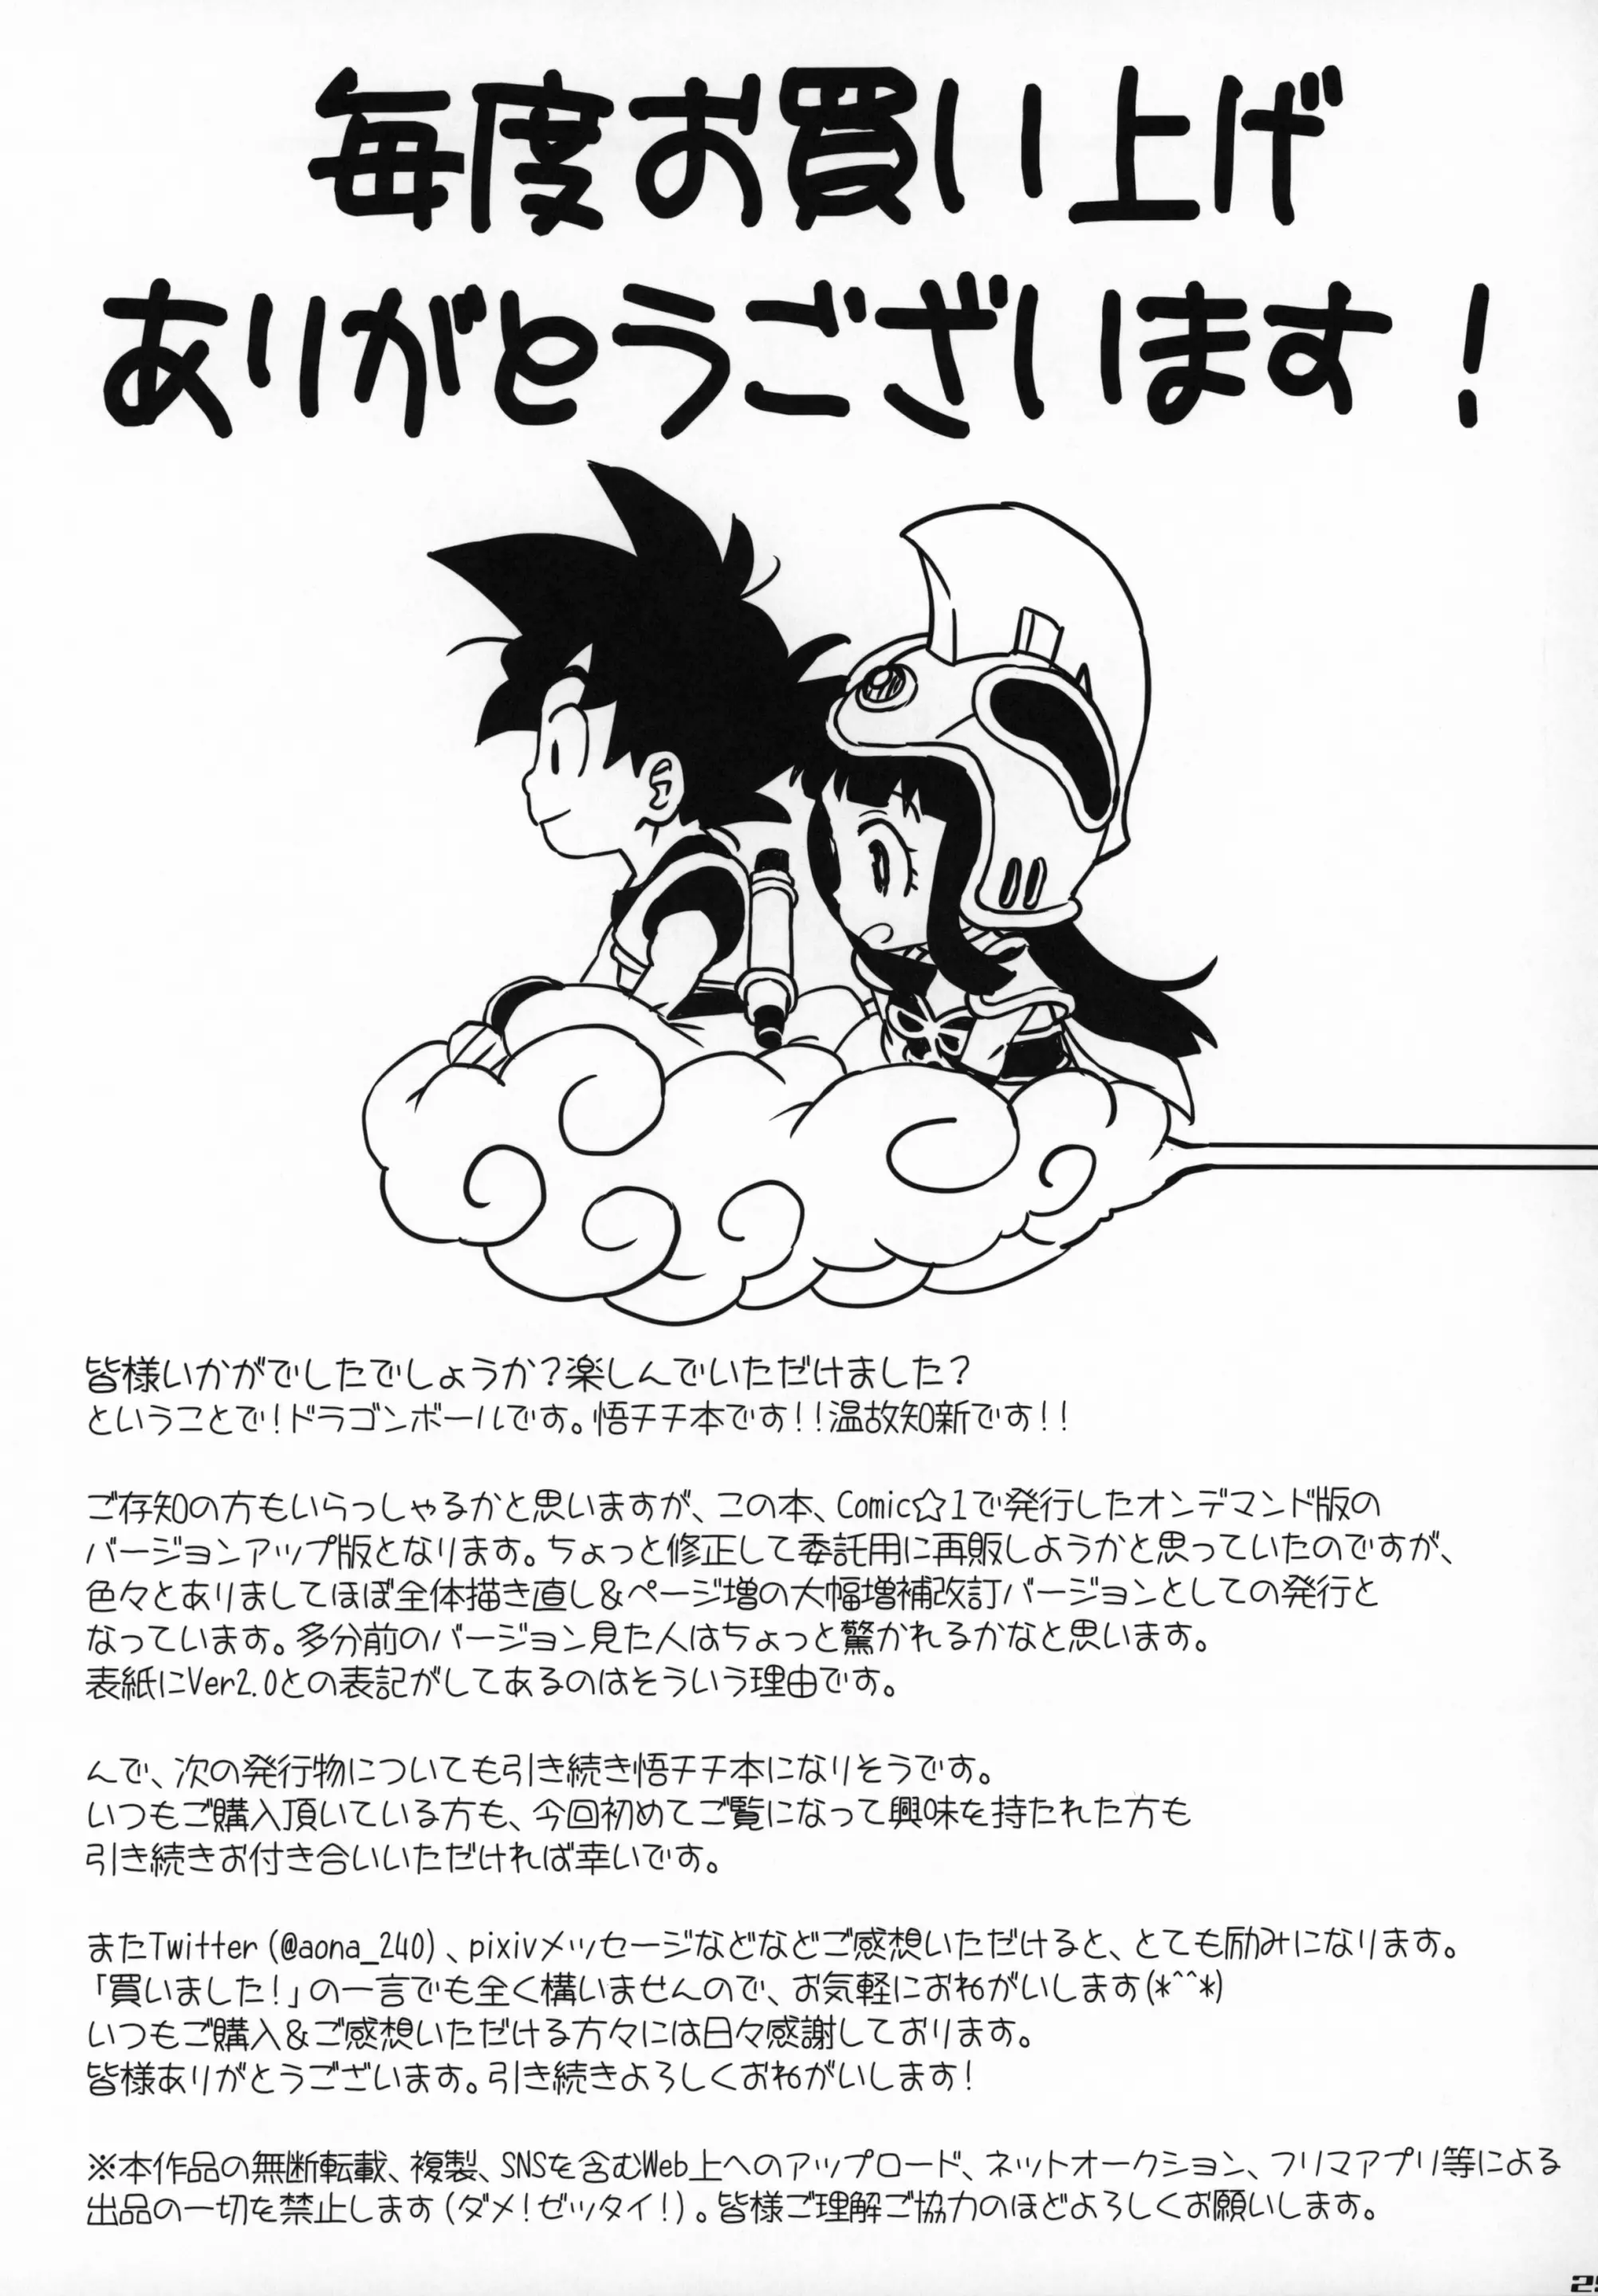 毎度お買い上げ
ありがとうございます!
皆様いかがでしたでしょうか?楽しんでいただけました?
ということで!ドラゴンボールです。悟チチ本です!!温故知新です!!
ご存知の方もいらっしゃるかと思いますが、この本、Comic☆1で発行したオンデマンド版の
バージョンアップ版となります。ちょっと修正して委託用に再販しようかと思っていたのですが、
色々とありましてほぼ全体描き直し&ページ増の大幅増補改訂バージョンとしての発行と
なっています。多分前のバージョン見た人はちょっと驚かれるかなと思います。
表紙にVer2.0との表記がしてあるのはそういう理由です。
んで、次の発行物についても引き続き悟チチ本になりそうです。
いつもご購入頂いている方も、今回初めてご覧になって興味を持たれた方も
引き続きお付き合いいただければ幸いです。
またTwitter(@aona_240)、pixivメッセージなどなどご感想いただけると、とても励みになります。
「買いました!」の一言でも全く構いませんので、お気軽におねがいします(*^^*)
いつもご購入&ご感想いただける方々には日々感謝しております。
皆様ありがとうございます。引き続きよろしくおねがいします!
※本作品の無断転載、複製、SNSを含むWeb上へのアップロード、ネットオークション、フリマアプリ等による
出品の一切を禁止します(ダメ!ゼッタイ!)。皆様ご理解ご協力のほどよろしくお願いします。